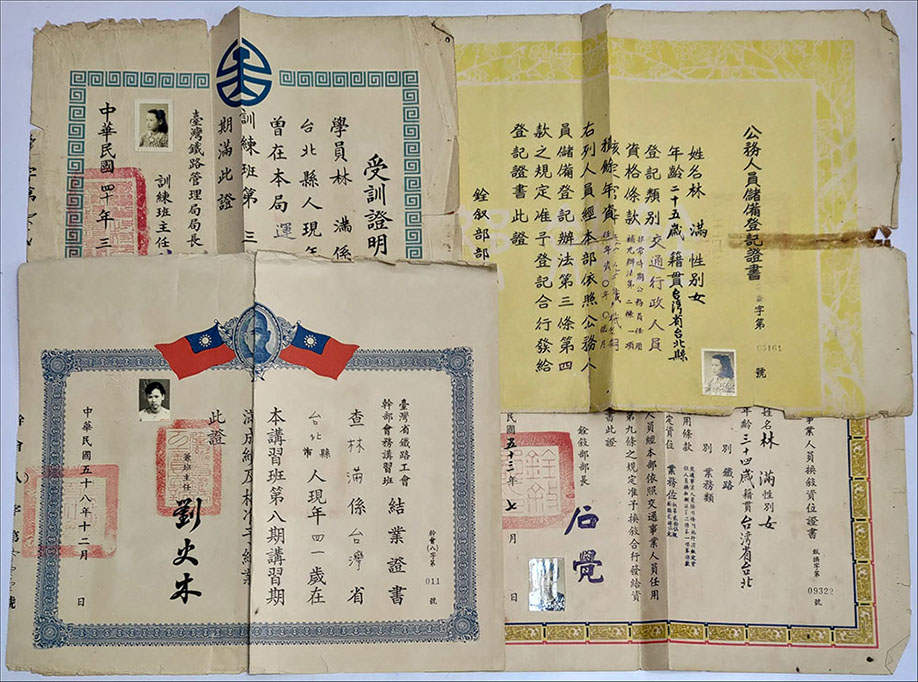 受訓證明
學員林 滿係
台北縣人現年
曾在本局運
訓練班第三
期滿此證
臺灣鐵路管理局局長
訓練班主任
中華民國四十年三
公務人員儲備登記證書
字第
號
姓名林 滿 性別女
年齡二十五歲籍貫台灣省台北縣
登記類別交通行政人員
資格條款
右列人員經本部依照公務人
員儲備登記辦法第三條第四
款之規定准予登記合行發給
登記證書此證
銓敘部部
臺灣省鐵路工會
幹部會務講習班
結業證書
幹會(八)字第
011
號
查林滿係台灣省
台北縣市人現年四一歲在
本講習班第八期講習期
滿成績及格准予結業
此證
兼班主任
劉火木
中華民國五十八年十二月 日
事業人員換敘資位證書
09322
號
姓名林 滿性別女
年齡三十四歲籍貫台灣省台北
別 鐵路
別 業務類
用條款
定資位 業務佐
人員經本部依照交通事業人員任用
第九條之規定准予換敘合行發給資
書此證
銓敘部部長
石覺
國五十三年七
月
日